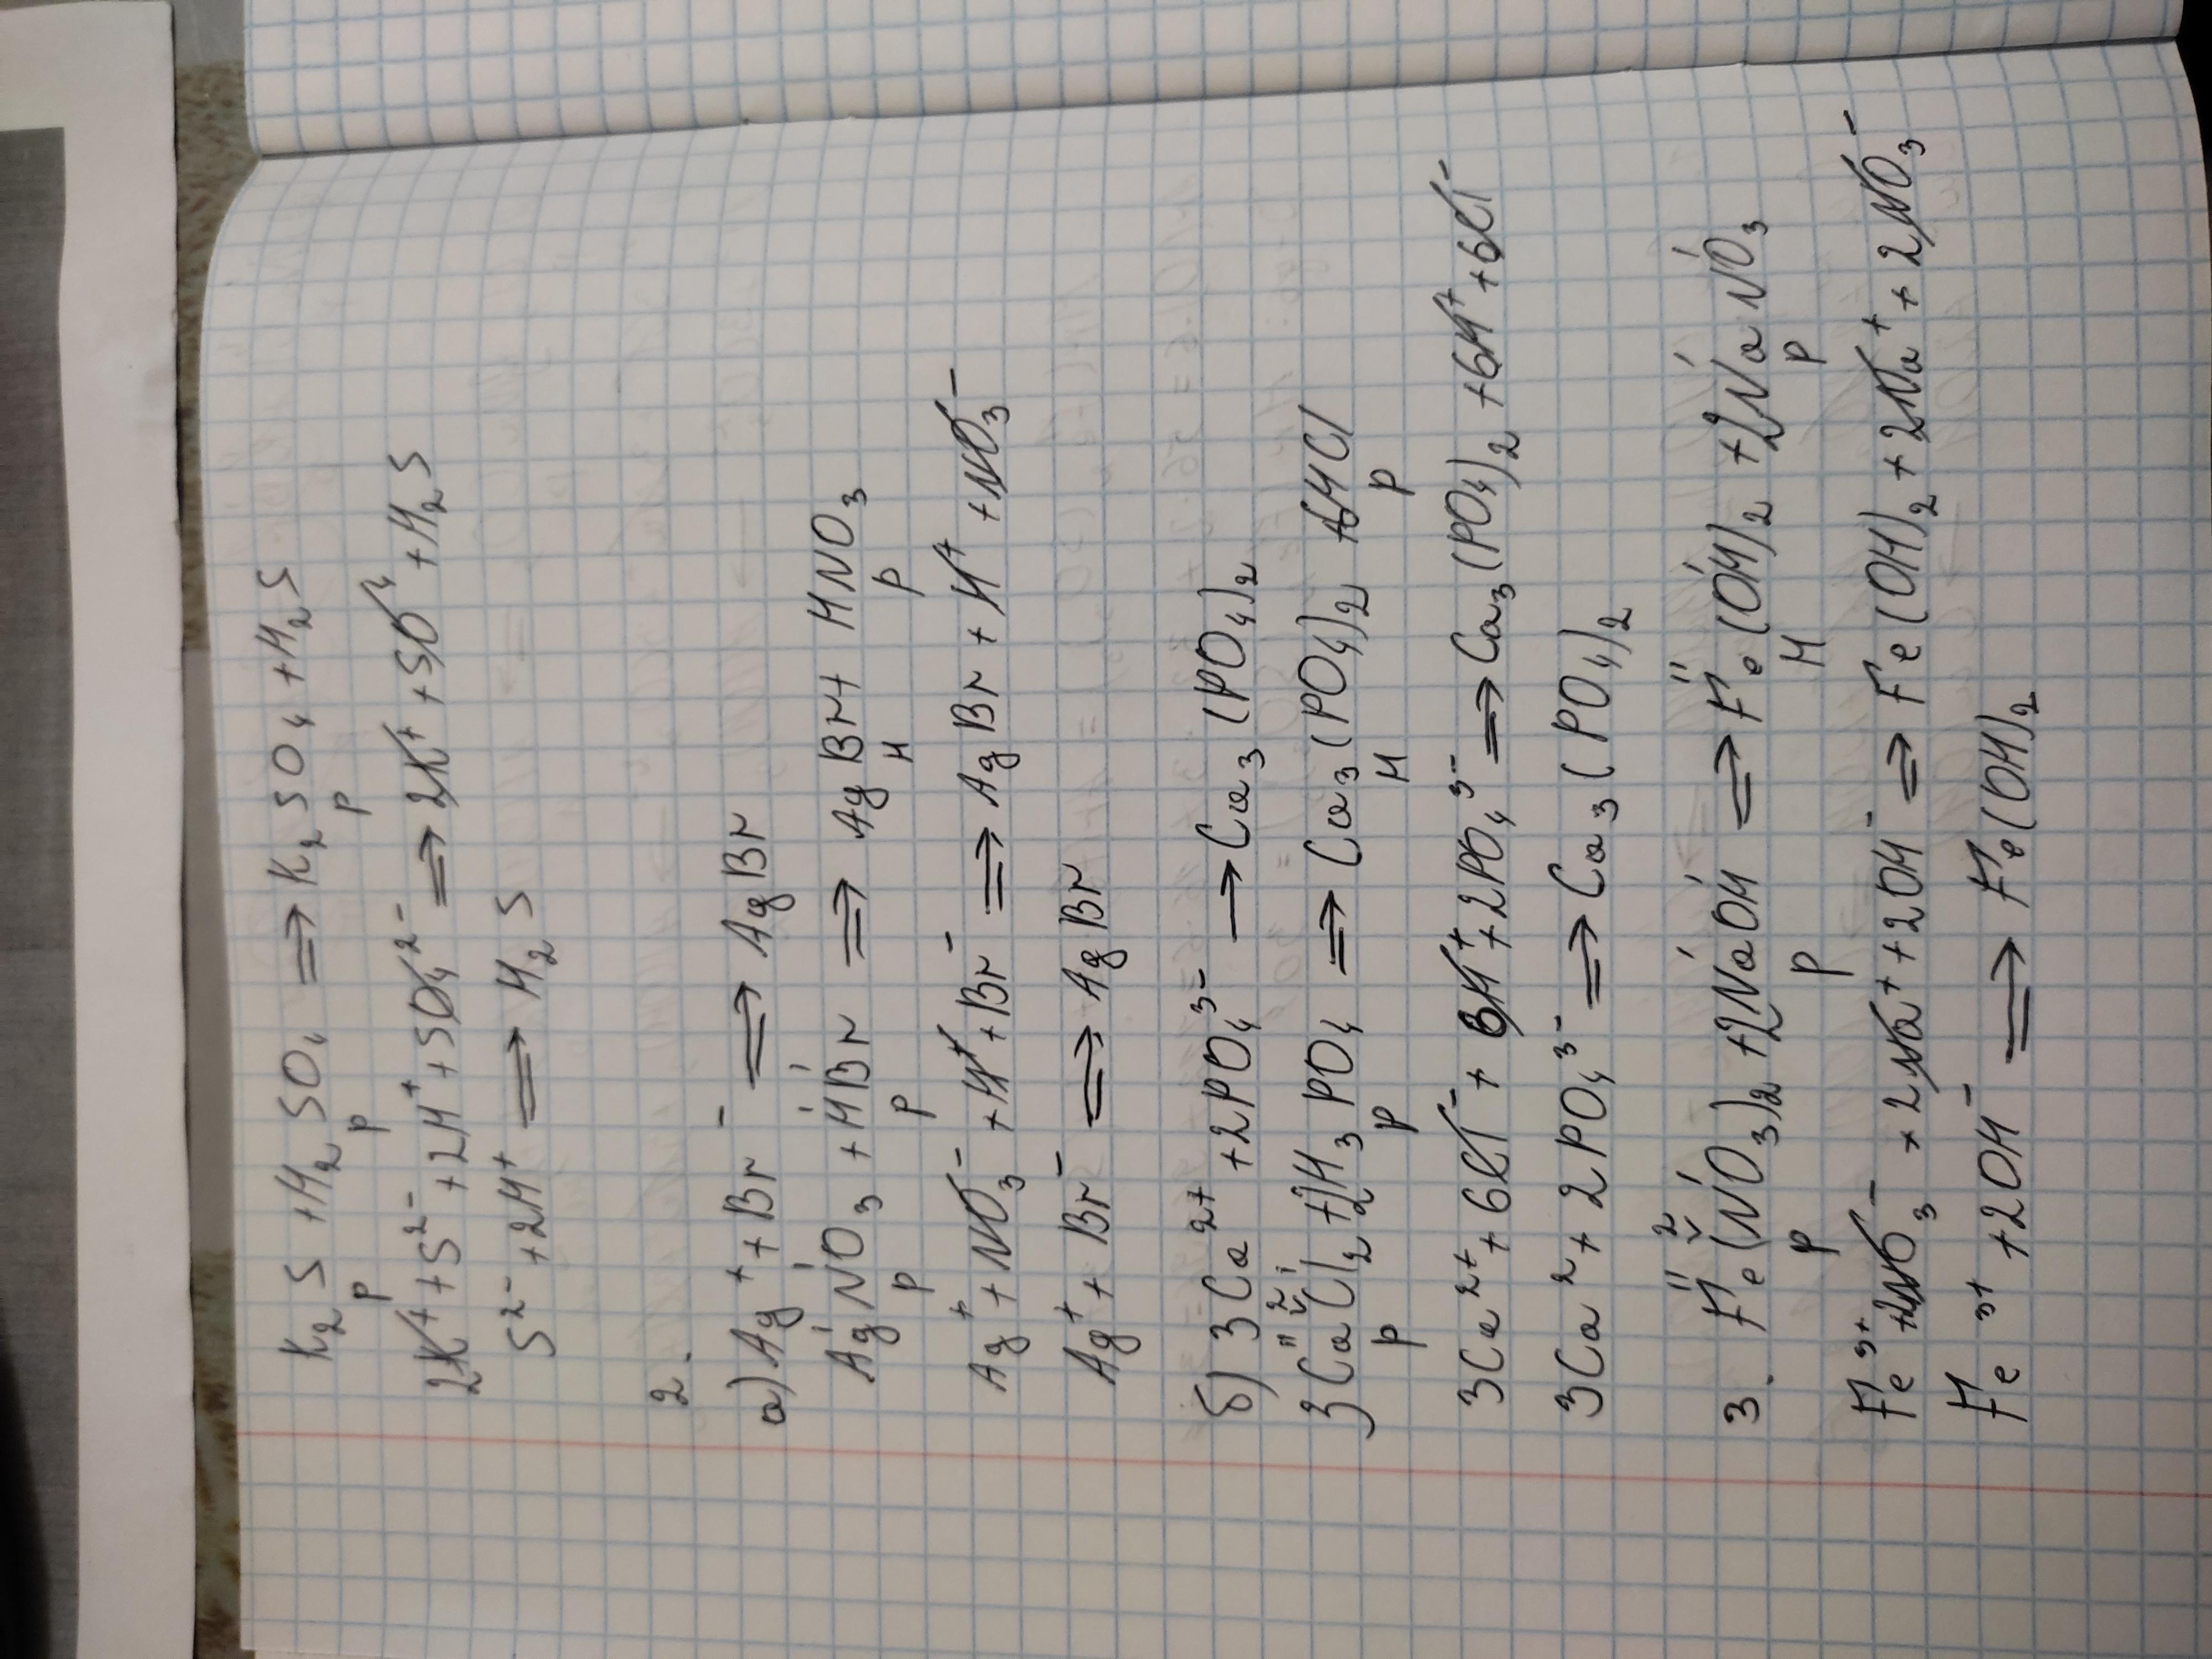 K₂S + H₂SO₄ ⇒ K₂SO₄ + H₂S
р р р
2K⁺ + S²⁻ + 2H⁺ + SO₄²⁻ ⇒ 2K⁺ + SO⁴ + H₂S
S²⁻ + 2H⁺ ⇒ H₂S
2.
а) Ag⁺ + Br⁻ ⇒ AgBr
AgᴵNOᴵ₃ + HᴵBrᴵ ⇒ AgBr + HNO₃
р р н р
Ag⁺ + NO₃⁻ + H⁺ + Br⁻ ⇒ AgBr + H⁺ + NO₃⁻
Ag⁺ + Br⁻ ⇒ AgBr
б) 3Ca²⁺ + 2PO₄³⁻ → Ca₃(PO₄)₂
3CaᴵᴵClᴵ₂ + 2H₃PO₄ ⇒ Ca₃(PO₄)₂ + 6HCl
р р н р
3Ca²⁺ + 6Cl⁻ + 6H⁺ + 2PO₄³⁻ ⇒ Ca₃(PO₄)₂ + 6H⁺ + 6Cl⁻
3Ca²⁺ + 2PO₄³⁻ ⇒ Ca₃(PO₄)₂
3. Feᴵᴵ(NOᴵ₃)₂ + 2NaᴵOHᴵ ⇒ Feᴵᴵ(OHᴵ)₂ + 2NaᴵNOᴵ₃
р р н р
Fe³⁺ + 2NO₃⁻ + 2Na⁺ + 2OH⁻ ⇒ Fe(OH)₂ + 2Na⁺ + 2NO₃⁻
Fe³⁺ + 2OH⁻ ⇒ Fe(OH)₂